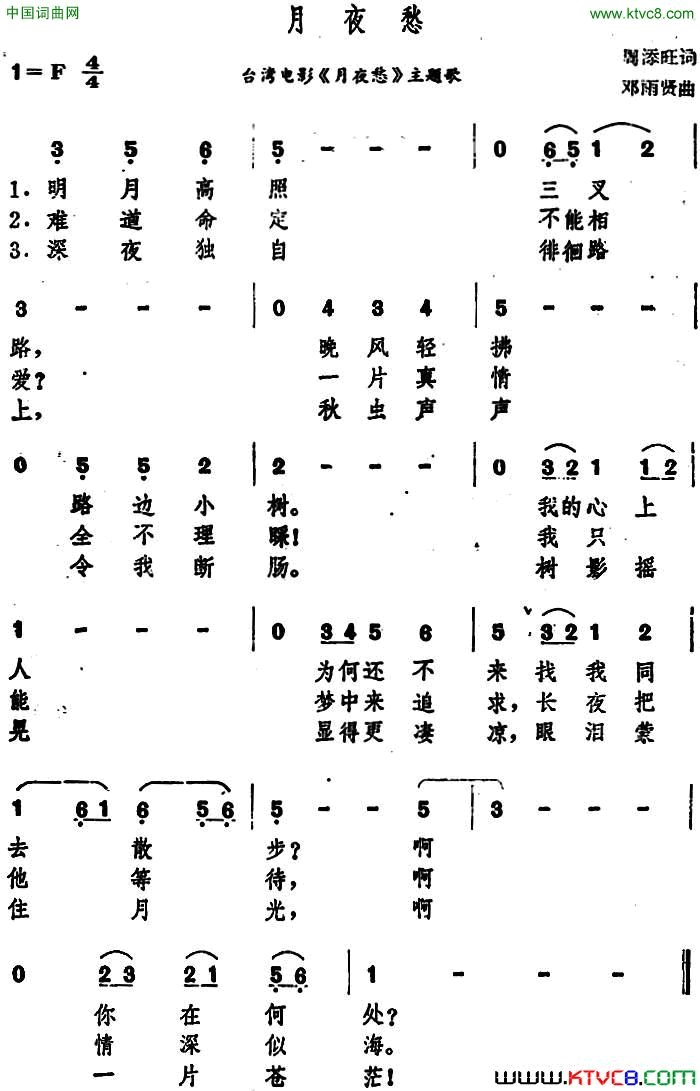 中国词曲网
www.ktvc8.com
月夜愁
1=F 4/4
台湾电影《月夜愁》主题歌
周添旺词
邓雨贤曲
3 5 6 | 5 - - - | 0 6 5 1 2 |
1. 明月高照 三叉
2. 难道命定 不能相
3. 深夜独自 徘徊路
3 - - - | 0 4 3 4 | 5 - - - |
路, 晚风轻拂
爱? 一片真情
上, 秋虫声声
0 5 5 2 | 2 - - - | 0 3 2 1 1 2 |
路边小树。 我的心上
全不理睬! 我只
令我断肠。 树影摇
1 - - - | 0 3 4 5 6 | 5 3 2 1 2 |
人 为何还不来找我同
能 梦中来追求,长夜把
晃 显得更凄凉,眼泪蒙
1 6 1 6 5 6 | 5 - - 5 | 3 - - - |
去散步? 啊
他等待, 啊
住月光, 啊
0 2 3 2 1 5 6 | 1 - - - ‖
你在何处?
情深似海。
一片苍茫!
www.KTVC8.COM